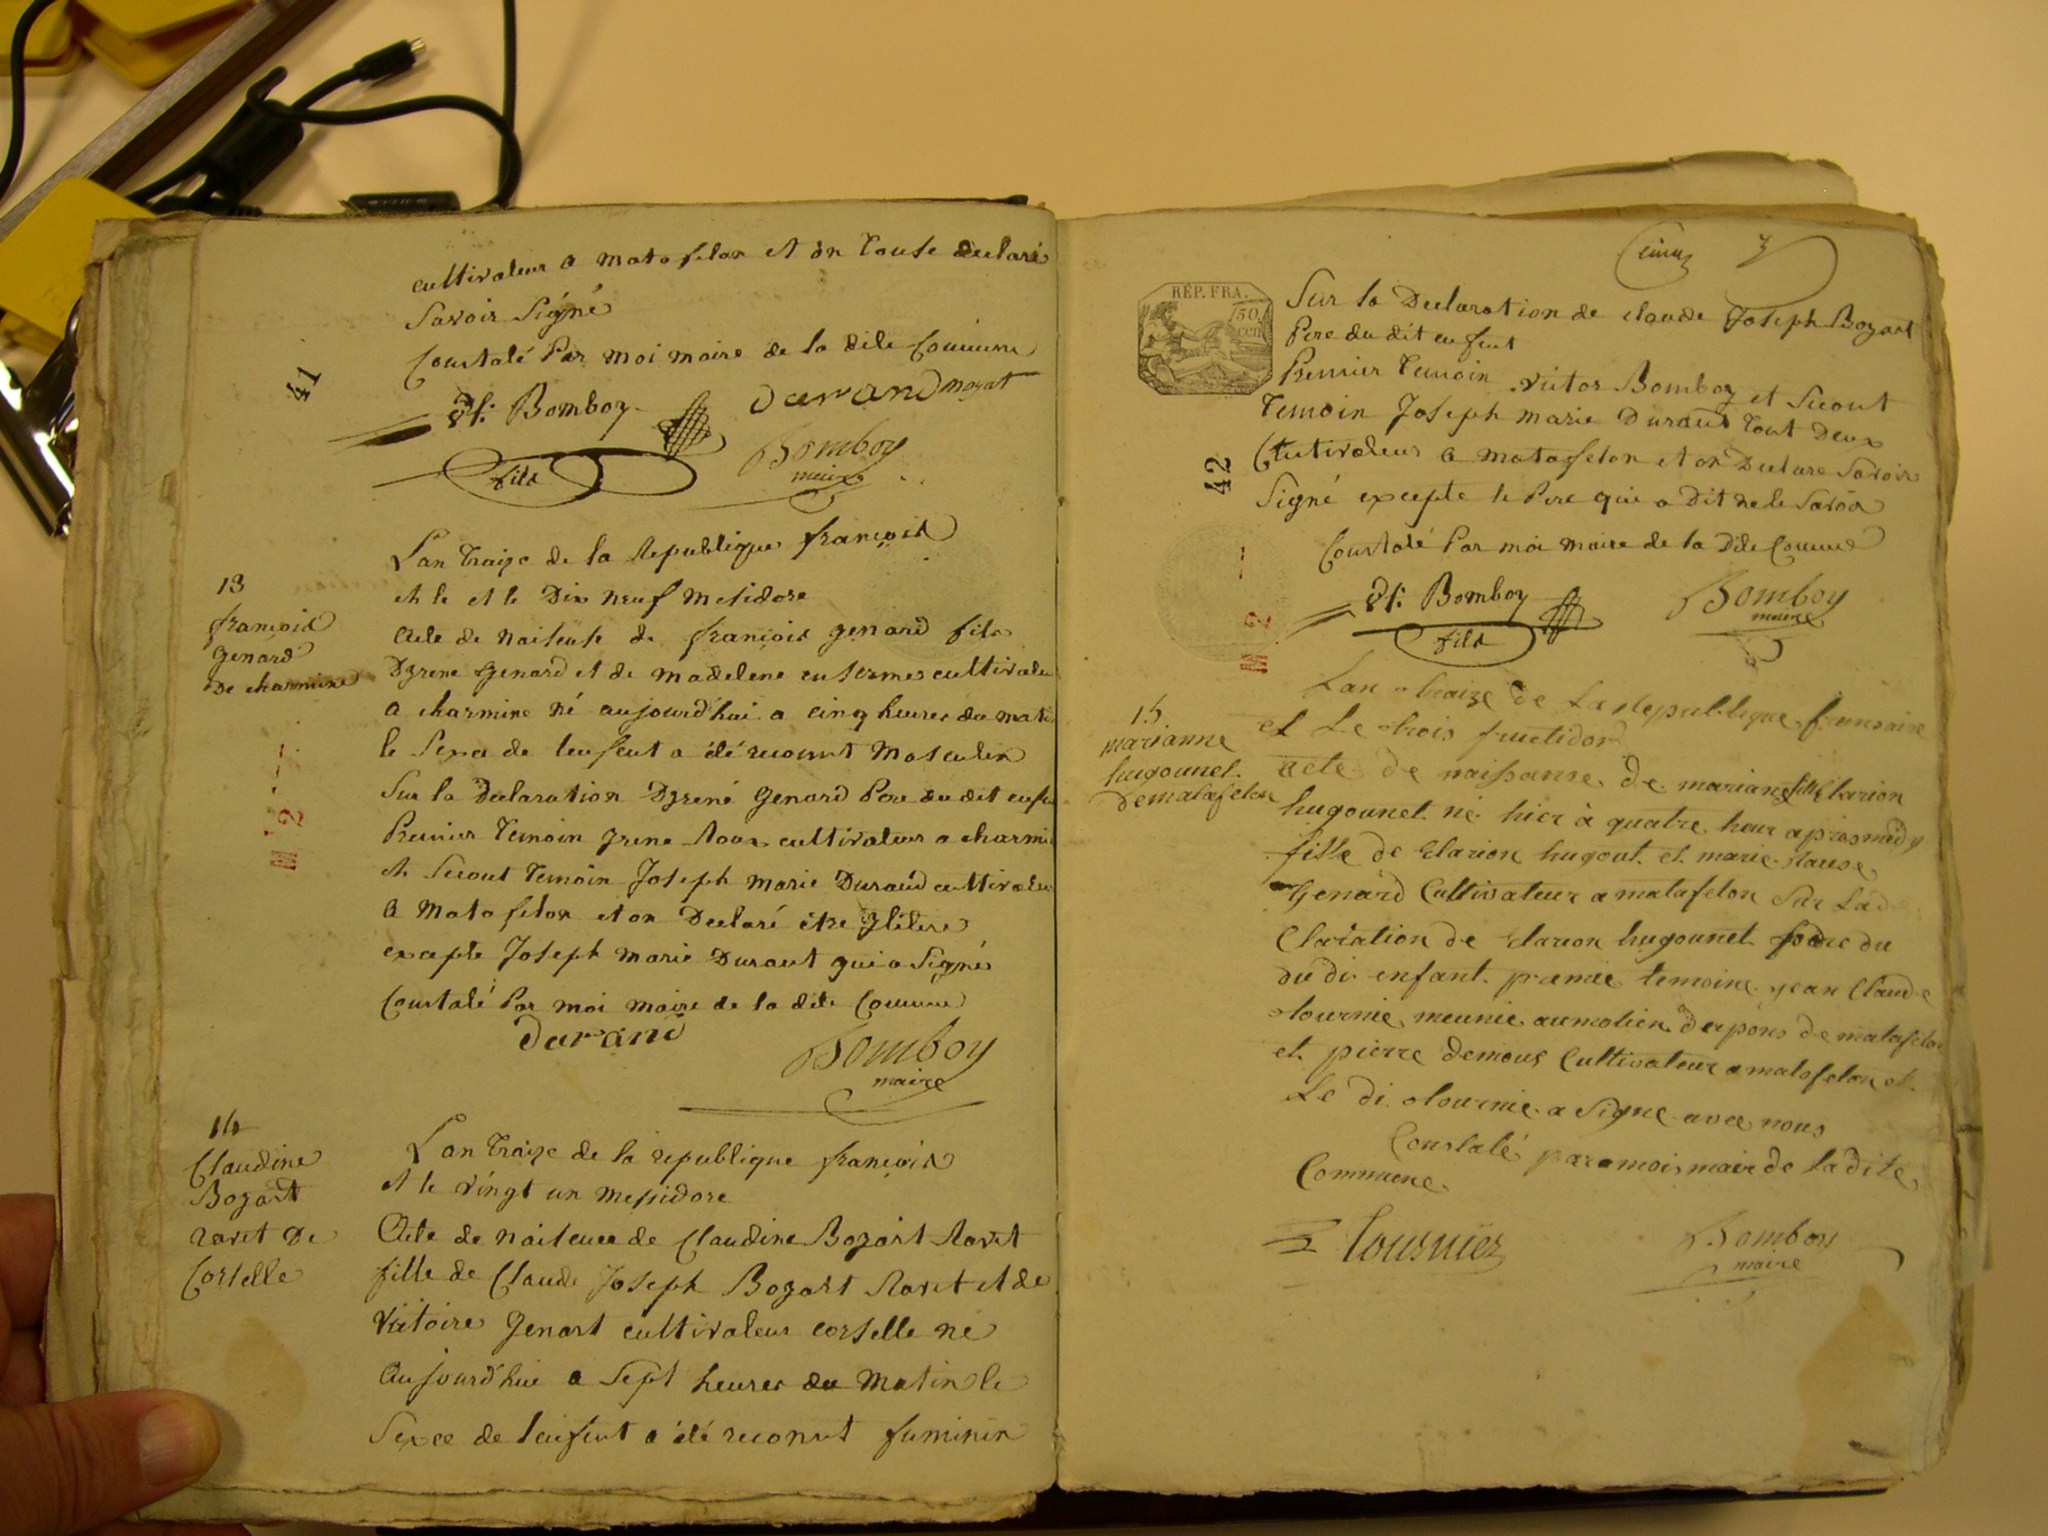 cultivateur a matafelon et on touse declaré
Savoir Signé
Constaté Par moi maire de la dite Commune
Bomboy
durand mozat
fils
Bomboy
maire
41
13
françois
genard
De charmine
Lan traize de la Republique françois
et le et le Dix neuf mesidore
acte de naisense de françois genard fils
Dyrené genard et de madelene cultivateur
a charmine né aujourd'hui a cinq heures du matin
le sexe de lenfent a été reconnut Masculin
Sur la Declaration Dyrené genard Pere du dit enfent
Premier temoin yrené Roux cultivateur a charmine
et Secont temoin Joseph marie Duraud cultivateur
a Matafelon et on Declaré etre ylitere
excepte Joseph marie Durant qui a Signé
Constaté Par moi maire de la dite Commune
durand
Bomboy
maire
M 2
14
Claudine
Bozart
ravet De
Corselle
Lan traize de la republique françois
et le vingt un messidore
Acte de naisence de Claudine Bozart Ravet
fille de Claude Joseph Bozart Ravet et de
Victoire genart cultivateur corselle né
aujourd'hui a sept heures du Matin le
Sexce de laifent a été reconut feminin
cinq
RÉP. FRA.
50
cen
Sur la Declaration de claude Joseph Bozart
Pere du dit enfent
Premier temoin Victor Bomboy et Secont
temoin Joseph marie Duraud tout Deux
Cultivateur a matafelon et on Declare Savoir
Signé excepte le Pere qui a Dit ne le Savoir
Constaté Par moi maire de la Dite Commune
Bomboy
Bomboy
maire
fils
42
M 2
15
marianne
hugounet
de matafelon
Lan traize de La republique fransaise
et Le trois fructidor
acte de naissanse de mariane fille Clarion
hugounet né hier à quatre heur apres midy
fille de Clarion hugout et marie
Genard Cultivateur a matafelon Sur La de
Claration de Clarion hugounet pere du
du di enfant premie temoine jean Claude
tournie meunie au molien de matafelon
et pierre demous Cultivateur a matafelon et
Le di tournie a Signe avec nous
Constaté par moi maire de la dite
Commune
Tournier
Bomboy
maire